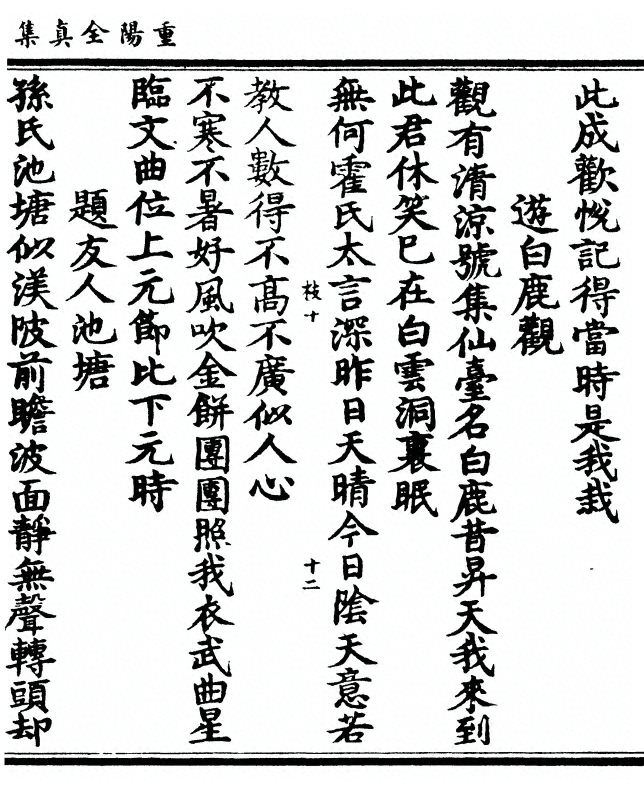 重陽全真集
此成歡悅記得當時是我栽
遊白鹿觀
觀有清涼號集仙臺名白鹿昔昇天我來到
此君休笑已在白雲洞裏眠
無何霍氏太言深昨日天晴今日陰天意若
枝十
十二
教人數得不高不廣似人心
不寒不暑好風吹金餅團團照我衣武曲星
臨文曲位上元節比下元時
題友人池塘
孫氏池塘似渼陂前瞻波面靜無聲轉頭却